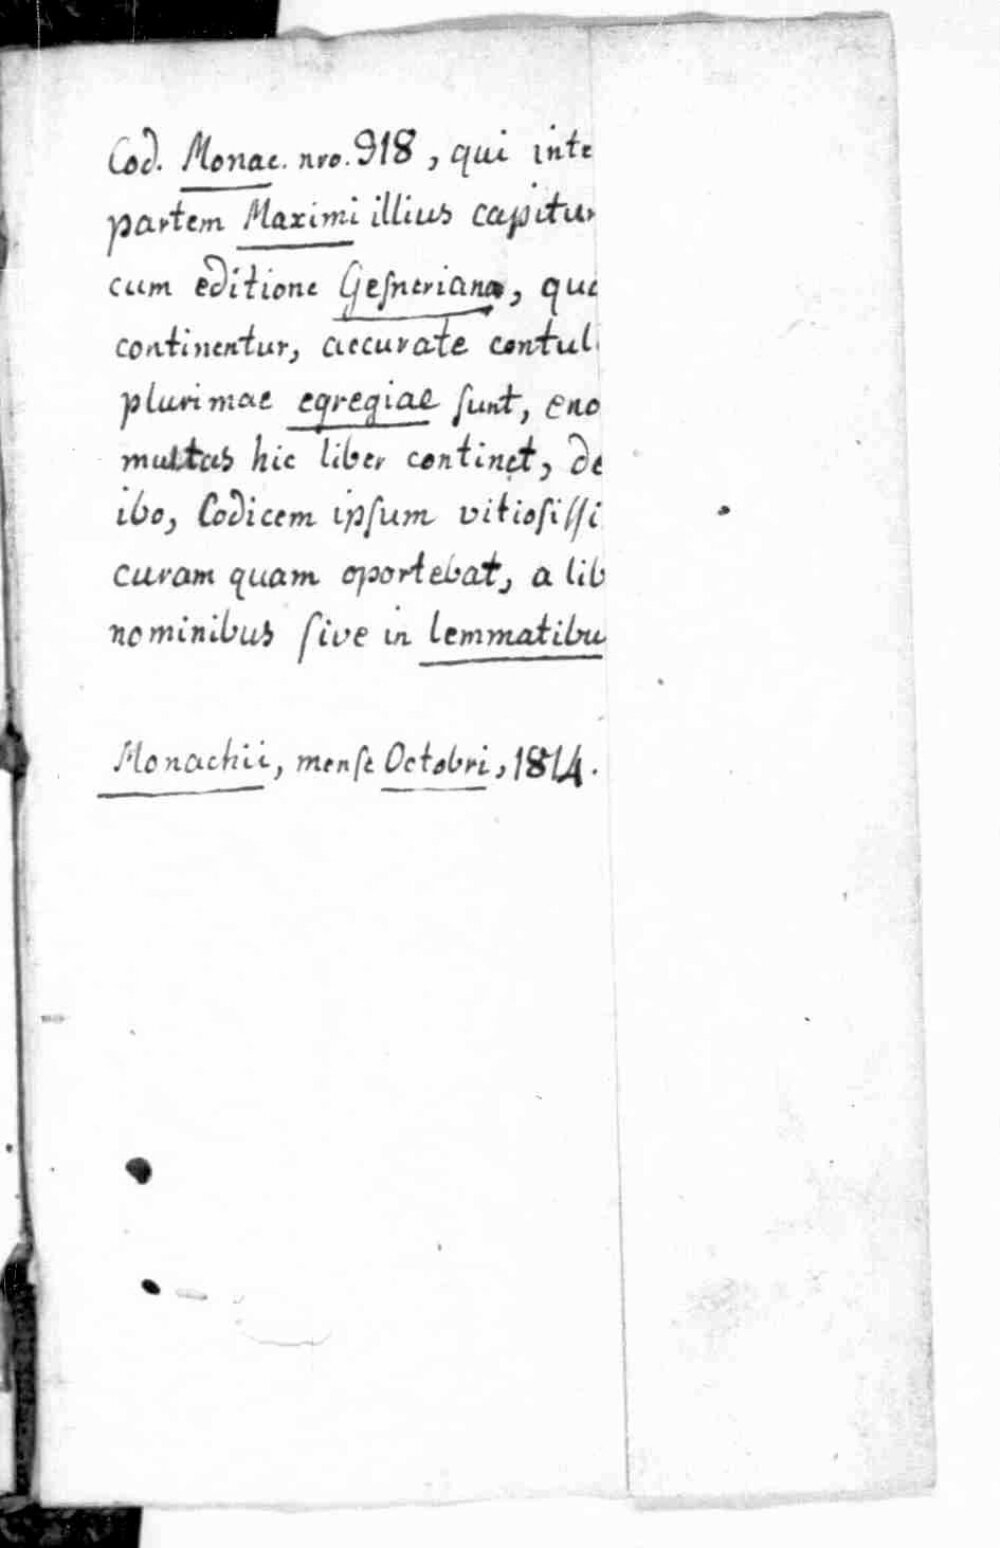 Cod. Monac. nro. 918, qui inte
partem Maximi illius capitur
cum editione Geſneriana, que
continentur, accurate contul
plurimae egregiae ſunt, eno
multas hic liber continet, de
ibo, Codicem ipſum vitioſiſſi
curam quam oportebat, a lib
nominibus ſive in lemmatibu
Monachii, menſe Octobri, 1814.